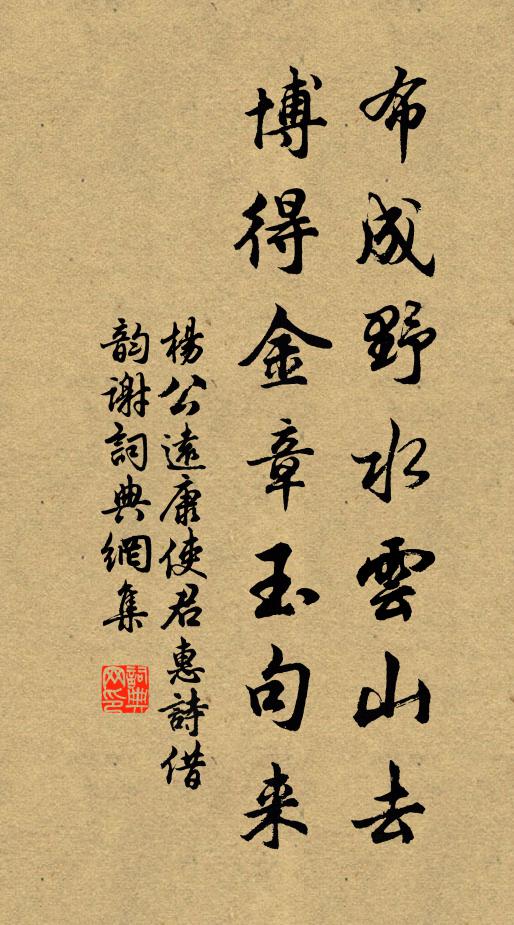 布成野水雲山去
博得金章玉句来
楊公遠康使君惠詩借
韵谢詞典網集
詞典网印